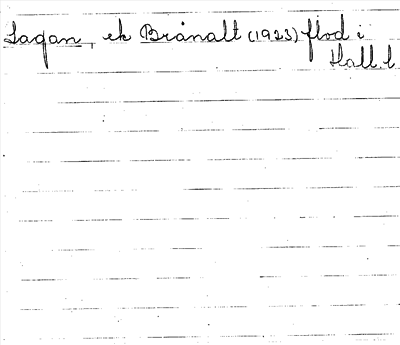 Lagan, ek Brånalt (1923) flod i
Hall. l